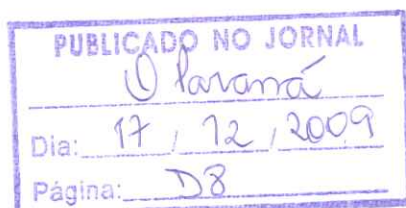 PUBLICADO NO JORNAL
O Paraná
Dia: 17 / 12 / 2009
Página: D8